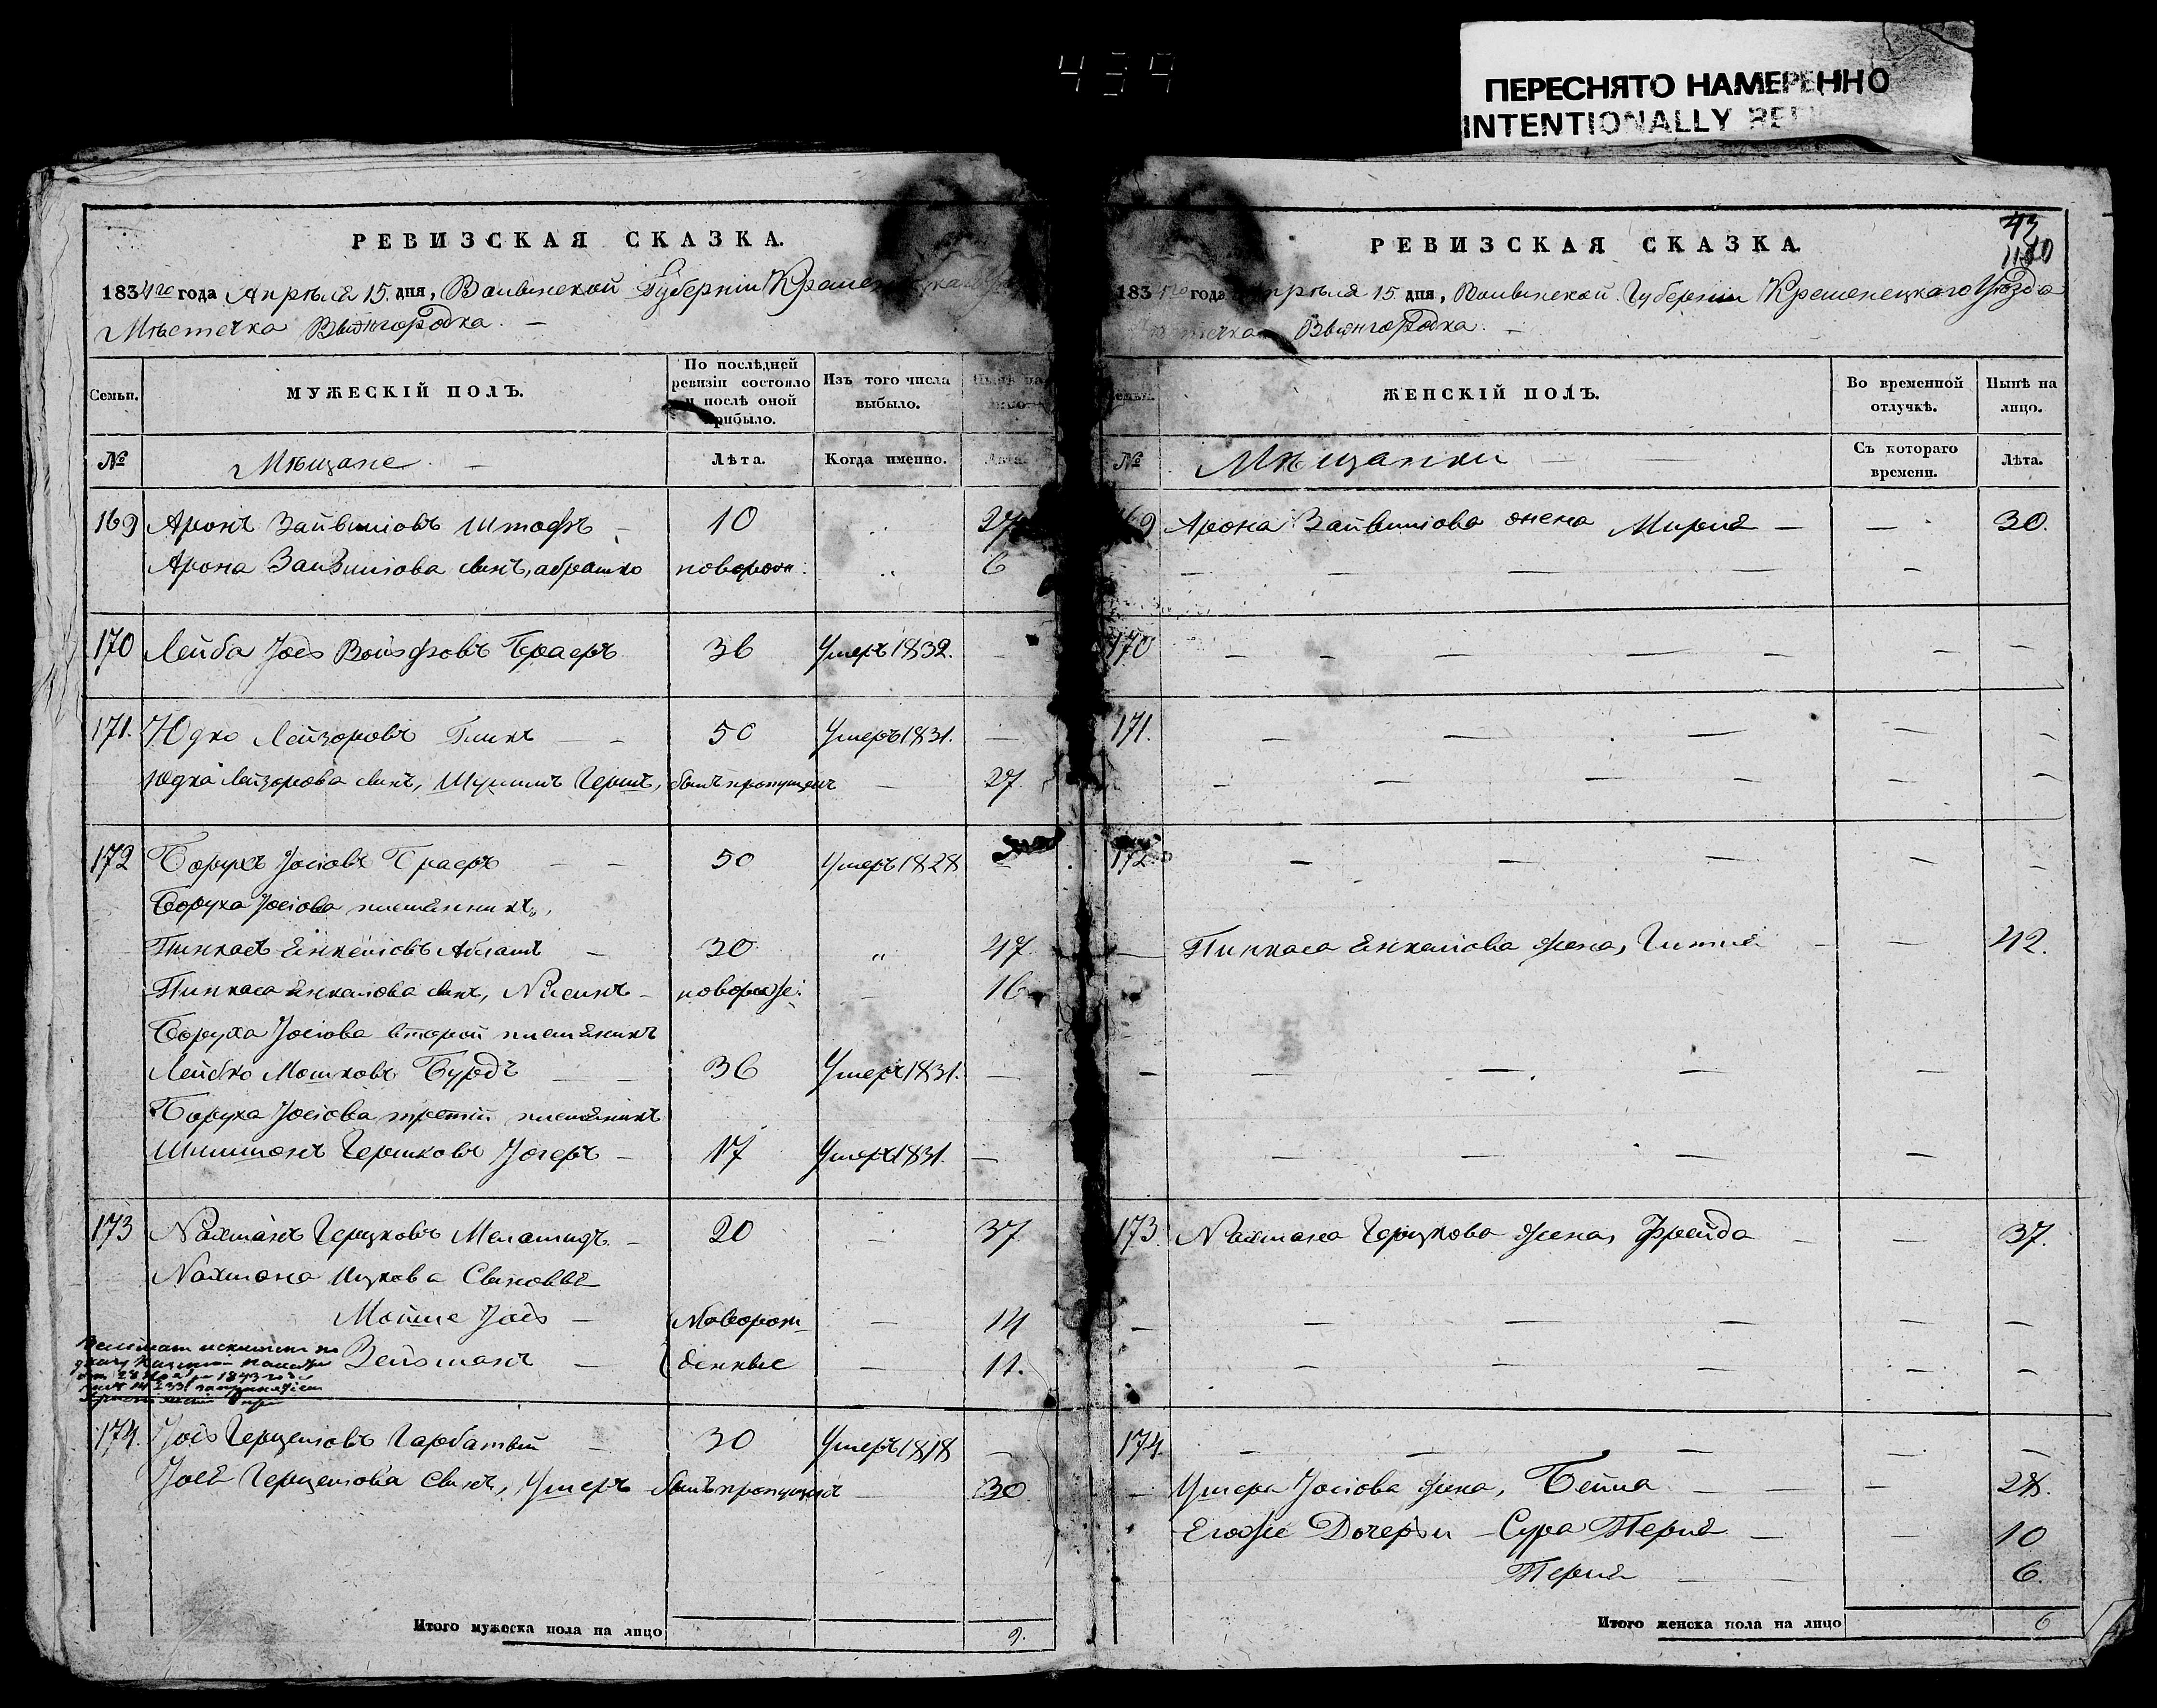 439
ПЕРЕСНЯТО НАМЕРЕННО
INTENTIONALLY
РЕВИЗСКАЯ СКАЗКА.
1834го года Апрѣля 15. дня, Волынской Губерніи
Мѣстечка Вышгородка. —
Семьи.
МУЖЕСКІЙ ПОЛЪ.
По послѣдней ревизіи состояло и послѣ оной прибыло.
Изъ того числа выбыло.
Нынѣ на лицо.
№
Мѣщане. —
Лѣта.
Когда именно.
Лѣта.
169 Аронъ Зайвиліовъ Штофъ — 10 27
Арона Зайвиліова сынъ, абрашко новорож. „ 6
170 Лейба Іось Войфовъ Браеръ 36 Умеръ 1832. —
171. Юдко Лейзоровъ Гликъ — — 50 Умеръ 1831. —
Юдка Лейзорова сынъ, Шулимъ Гершъ, былъ пропущенъ — 27
172 Борухъ Іосіовъ Браеръ — — 50 Умеръ 1828 —
Боруха Іосіова племянникъ,
Пинкасъ Янкеліовъ — 30 „ 47.
Пинкаса Янкеліова сынъ, Nисинъ — новорож. — 16
Боруха Іосіова второй племяникъ
Лейбко Мошковъ Бурдъ — — 36 Умеръ 1831. —
Боруха Іосіова третій племяникъ
Шлиомонъ Гершковъ — 17 Умеръ 1831. —
173 Nахманъ Герцковъ Меламидъ — 20 — 37.
Nахмана Ицкова Сыновья
Мойше Іось — Новорож — 14
Зейдманъ — денные — 11.
174. Іось Герцеліовъ Гарбатый — 30 Умеръ 1818 —
Іося Герцеліова сынъ, Ушеръ былъ пропущенъ — 30
Итого мужеска пола на лицо 9.
43
РЕВИЗСКАЯ СКАЗКА.
1834го года Апрѣля 15 дня, Волынской Губерніи Кременецкаго Уѣзда
Вышгородка. —
Семьи.
ЖЕНСКІЙ ПОЛЪ.
Во временной отлучкѣ.
Нынѣ на лицо.
№
Мѣщанки — —
Съ котораго времени.
Лѣта.
169 Арона Зайвиліова жена Мирля — — 30.
170 — — — — — — —
171. — — — — —
— — — — — —
172 — — — — —
— Пинкаса Янкеліова жена, Гитля — — 42.
— — — — —
— — — —
173 Nахмана Герцкова жена, Фрейда — — 37.
— — — — — —
— — — — —
174 — — — — —
— Ушера Іосіова жена, Бейла — — — 28.
Егоже Дочери — Сура Перля — — 10
Перля — — 6.
Итого женска пола на лицо 6